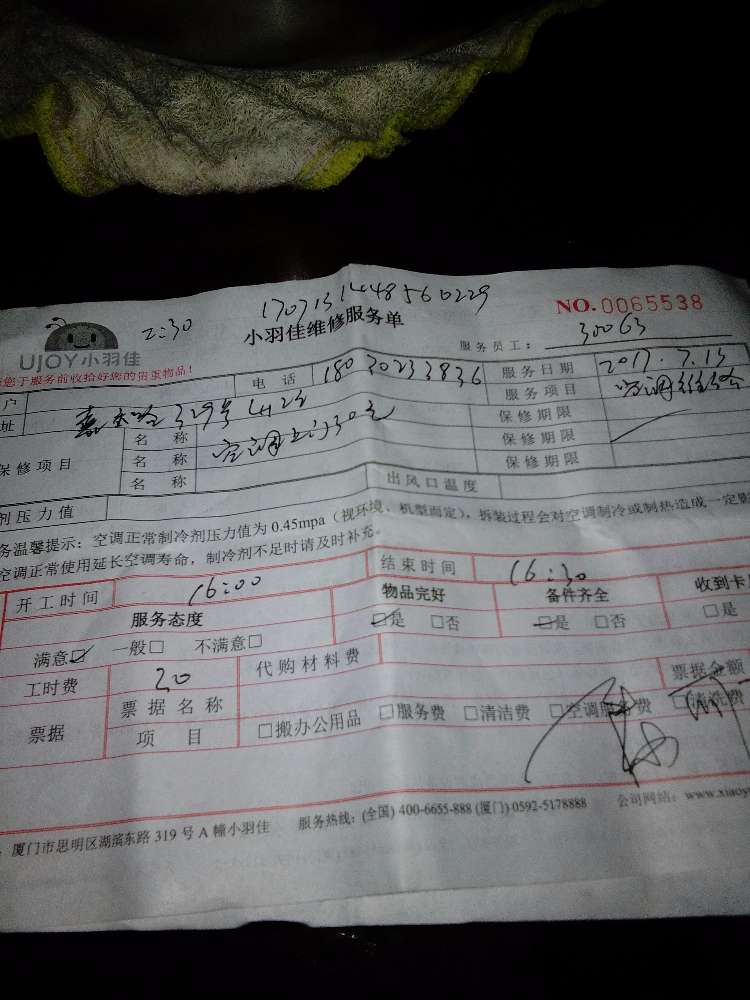 1707131448560229
2:30
小羽佳维修服务单
NO.0065538
UJOY小羽佳
服务员工: 30063
您于服务前收拾好您的贵重物品!
户 电话 18030233836 服务日期 2017.7.13
址 329号 服务项目 空调维修
保修项目 名称 空调 30元 保修期限
名称 保修期限
名称 保修期限
剂压力值 出风口温度
务温馨提示:空调正常制冷剂压力值为 0.45mpa(视环境、机型而定),拆装过程会对空调制冷或制热造成一定影
空调正常使用延长空调寿命,制冷剂不足时请及时补充。
开工时间 16:00 结束时间 16:30
服务态度 物品完好 备件齐全 收到卡
满意☑ 一般□ 不满意□ ☑是 □否 ☑是 □否 □是
工时费 20 代购材料费 票据金额
票据 票据名称
项目 □搬办公用品 □服务费 □清洁费 □空调服务费 □清洗费
厦门市思明区湖滨东路 319 号 A 幢小羽佳 服务热线:(全国) 400-6655-888 (厦门) 0592-5178888 公司网站:www.xiaoyu